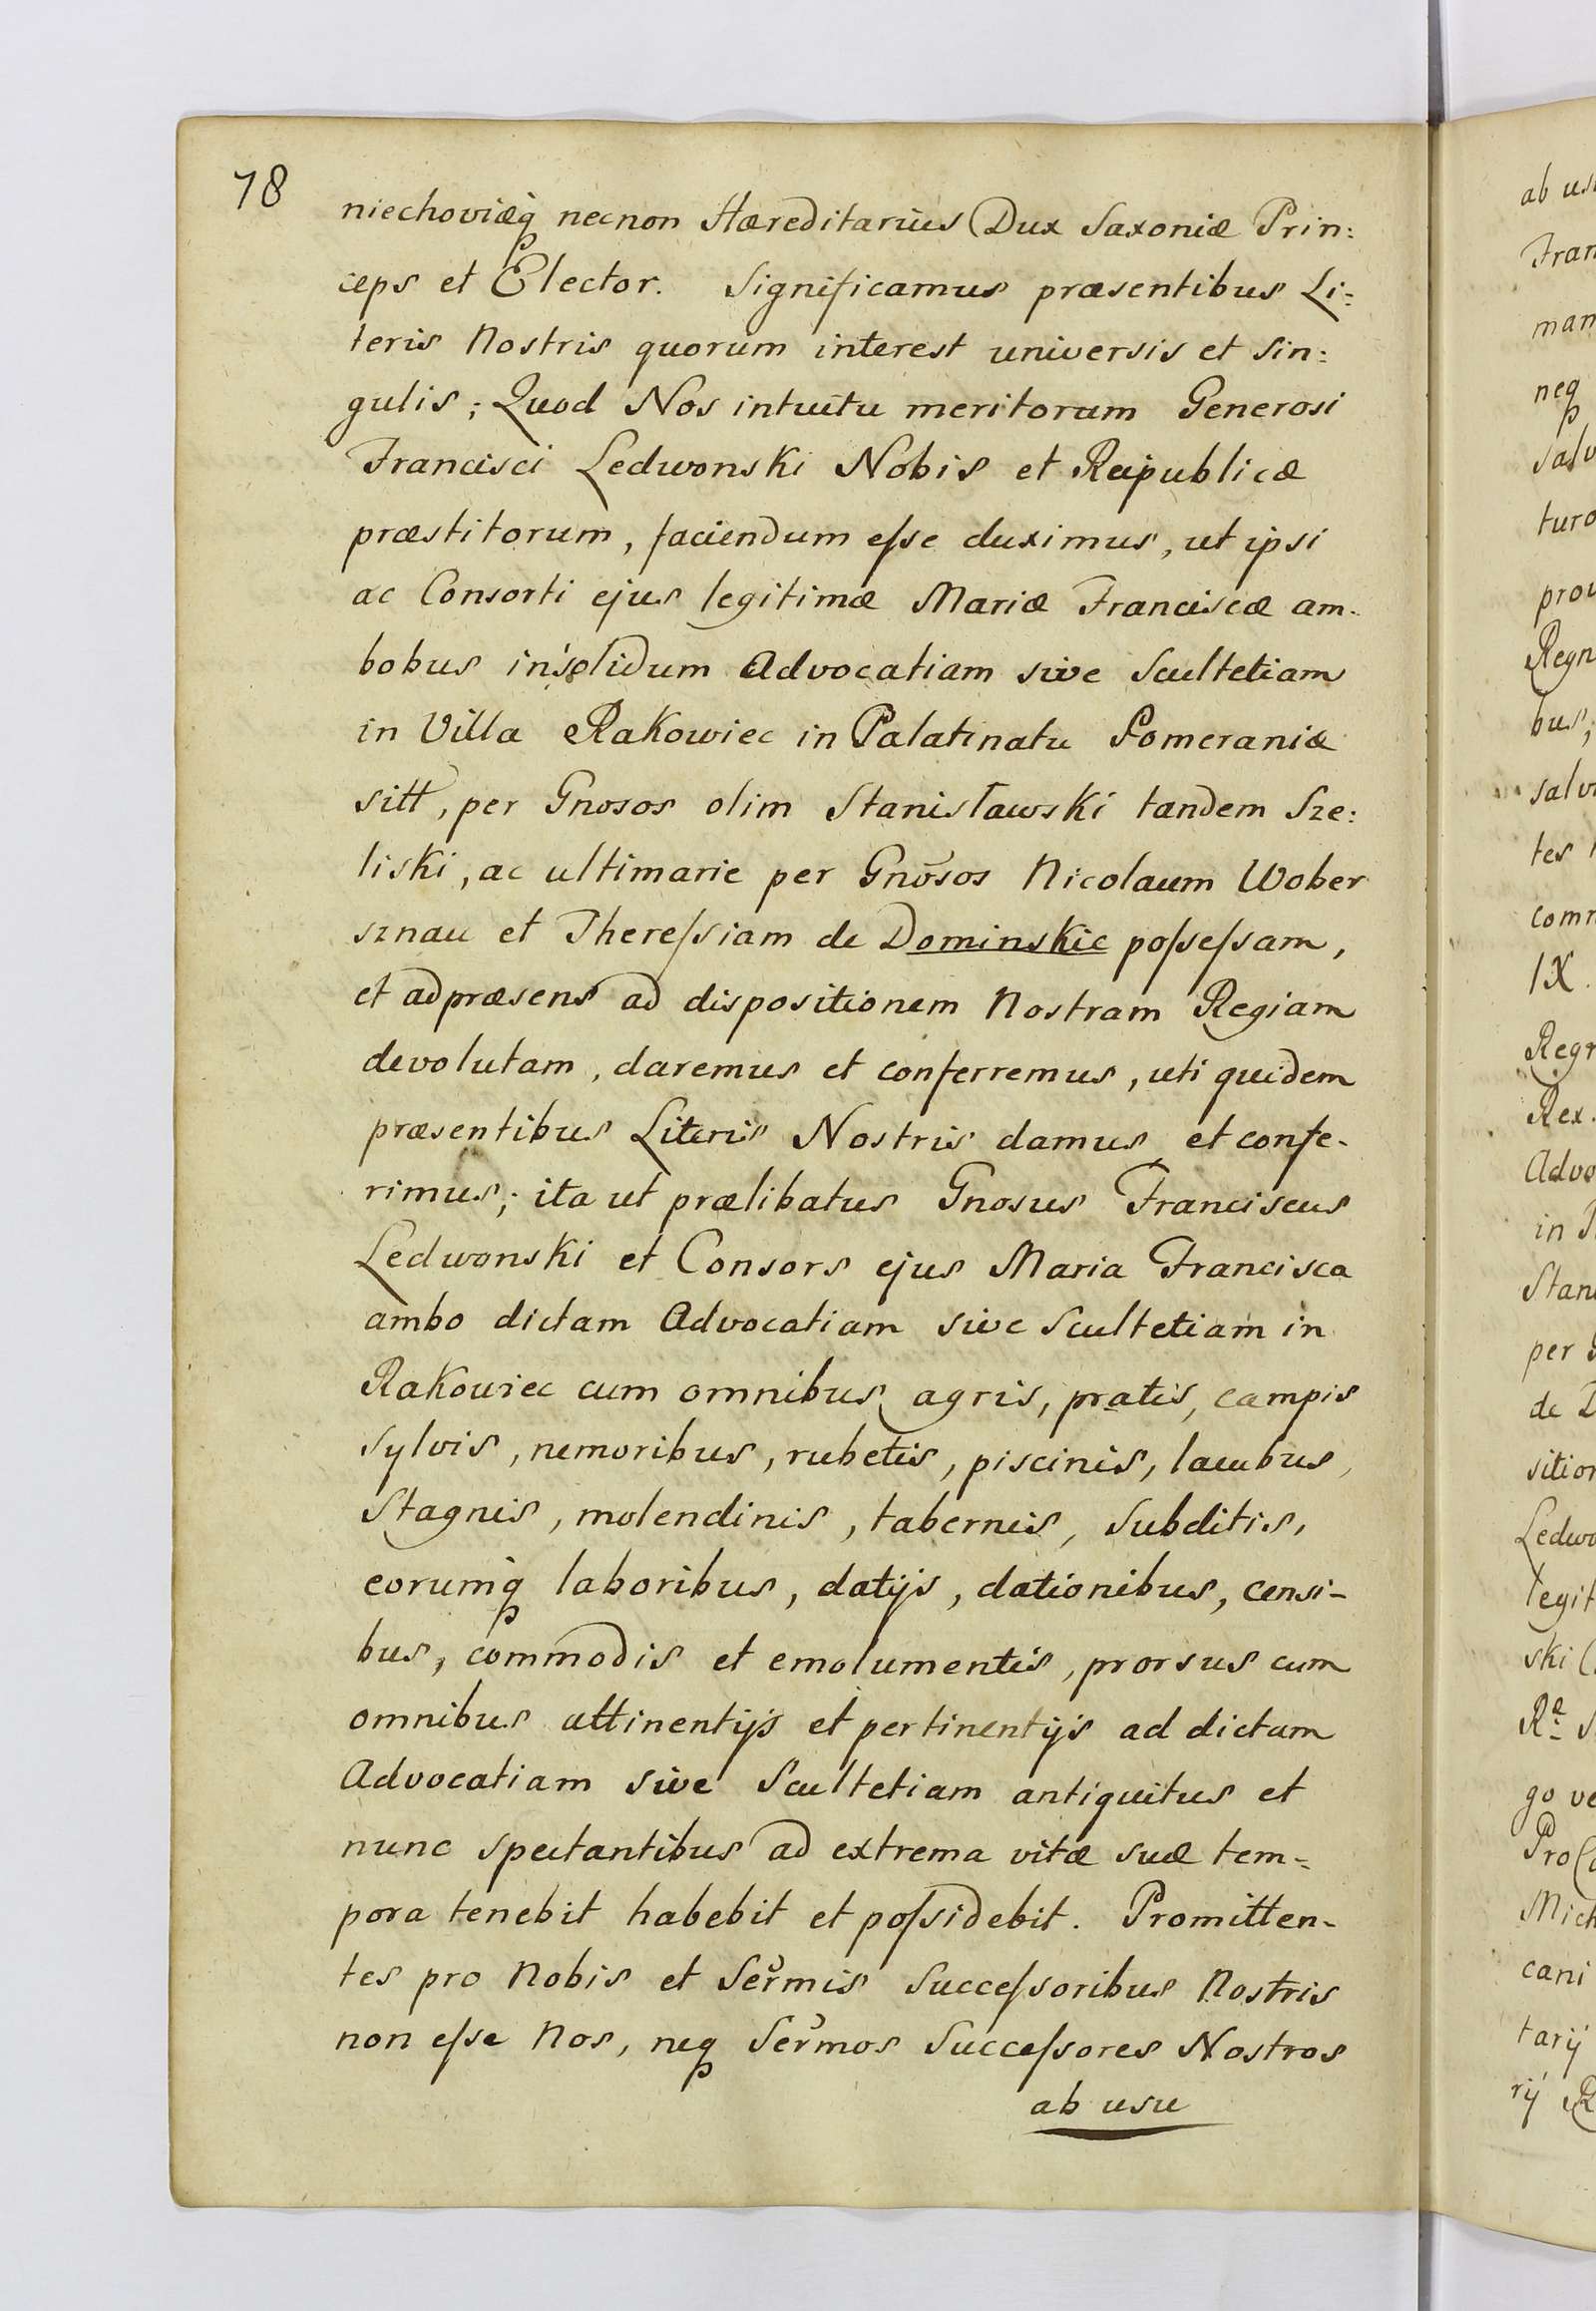 78
niechoviæq̃ necnon Hæreditarius Dux Saxoniæ Prin:
ceps et Elector. Significamus præsentibus Li:
teris Nostris quorum interest universis et sin:
gulis; Quod Nos intuitu meritorum Generosi
Francisci Ledwonski Nobis et Reipublicæ
præstitorum, faciendum eſse duximus, ut ipsi
ac Consorti ejus legitimæ Mariæ Franciscæ am-
bobus insolidum Advocatiam sive Scultetiam
in Villa Rakowiec in Palatinatu Pomeraniæ
sitt, per Gnosos olim Stanisławski tandem Sze:
liski, ac ultimarie per Gnõsos Nicolaum Wober
sznau et Thereſsiam de Dominskie poſseſsam,
et adpræsens ad dispositionem Nostram Regiam
devolutam, daremus et conferremus, uti quidem
præsentibus Literis Nostris damus et confe-
rimus; ita ut prælibatus Gnosus Franciscus
Ledwonski et Consors ejus Maria Francisca
ambo dictam Advocatiam sive Scultetiam in
Rakowiec cum omnibus agris, pratis, campis
Sylvis, nemoribus, rubetis, piscinis, lacubus,
Stagnis, molendinis, tabernis, Subditis,
eorumq̃ laboribus, datijs, dationibus, censi-
bus, commodis et emolumentis, prorsus cum
omnibus attinentijs et pertinentijs ad dictam
Advocatiam sive Scultetiam antiquitus et
nunc spectantibus ad extrema vitæ suæ tem=
pora tenebit habebit et poſsidebit. Promitten-
tes pro Nobis et Sermis Succeſsoribus Nostris
non eſse Nos, neq Sermos Succeſsores Nostros
ab usu
ab usu
Fran
man
neq
salv
turo
prou
Regn
bus,
salv
tes
comm
IX.
Regn
Rex.
Advo
in P
Stani
per G
de D
sition
Ledwo
legit
ski
go ve
Mich
cani
tarij
rij R